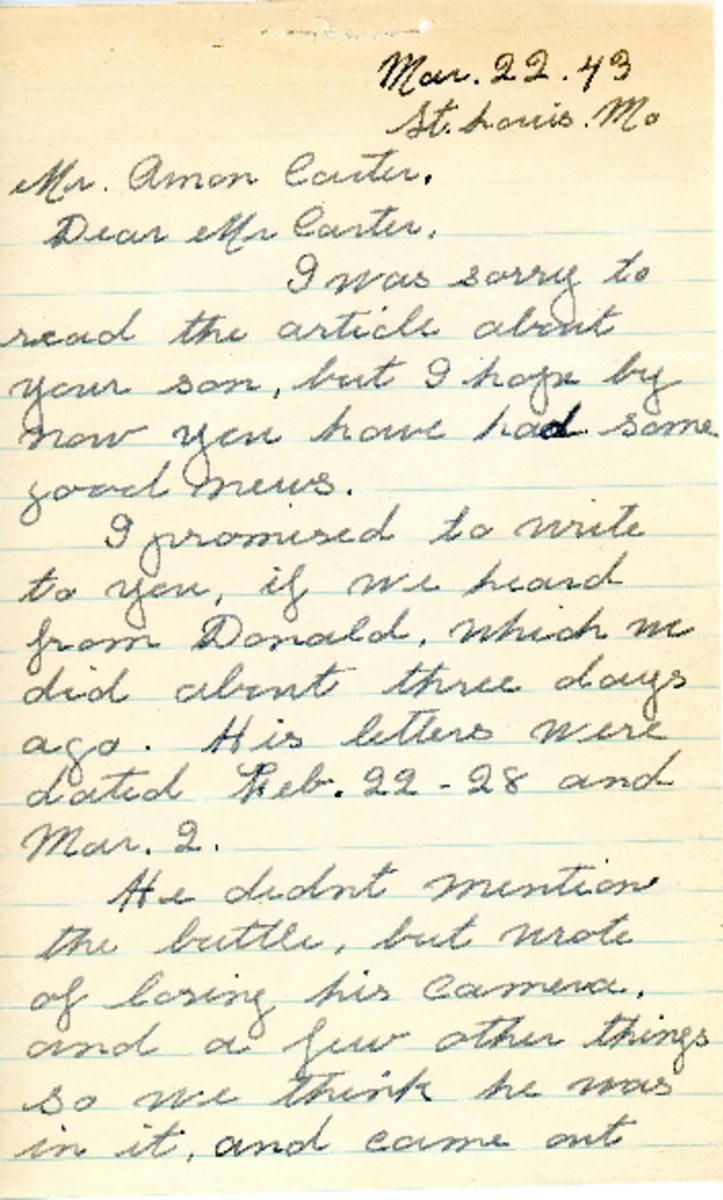 Mar. 22. 43
St. Louis. Mo
Mr. Amon Carter.
Dear Mr Carter.
I was sorry to
read the article about
your son, but I hope by
now you have had some
good news.
I promised to write
to you, if we heard
from Donald, which we
did about three days
ago. His letters were
dated Feb. 22 - 28 and
Mar. 2.
He didnt mention
the battle, but wrote
of losing his camera.
and a few other things
so we think he was
in it, and came out